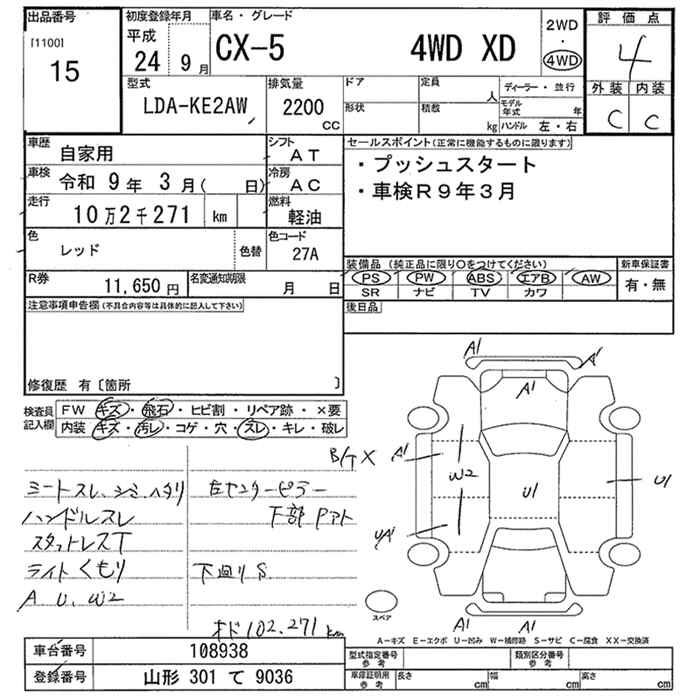 出品番号
[1100]
15
初度登録年月
平成
24 9月
車名・グレード
CX-5 4WD XD
2WD
・
4WD
評価点
4
外装 内装
C C
型式
LDA-KE2AW
排気量
2200
CC
ドア
定員
人
形状
積数
kg
ディーラー・並行
モデル年式 年
ハンドル 左・右
車歴
自家用
シフト
AT
車検
令和 9年 3月( 日)
冷房
AC
走行
10万2千271 km
燃料
軽油
色
レッド
色替
色コード
27A
R券
11,650円
名変通知期限
月 日
セールスポイント(正常に機能するものに限ります)
・プッシュスタート
・車検R9年3月
装備品(純正品に限り○をつけてください)
PS PW ABS エアB AW
SR ナビ TV カワ
新車保証書
有・無
注意事項申告欄(不具合内容等は具体的に記入して下さい)
後日品
修復歴 有〔箇所 〕
検査員
記入欄
FW キズ・飛石・ヒビ割・リペア跡・×要
内装 キズ・汚レ・コゲ・穴・スレ・キレ・破レ
B/T X
シートスレ、シミ、ヘタリ
ハンドルスレ
スタットレスT
ライトくもり
A U、W2
左センターピラー
下部Pアト
下廻りS
オド102,271km
A1
A1
A1
A1
W2
U1
U1
UA1
A1
A1
A1
スペア
A-キズ E-エクボ U-凹み W-補修跡 S-サビ C-腐食 XX-交換済
車台番号
108938
登録番号
山形 301 て 9036
型式指定番号
参考
類別区分番号
参考
車庫証明用
参考
長さ cm
幅 cm
高さ cm